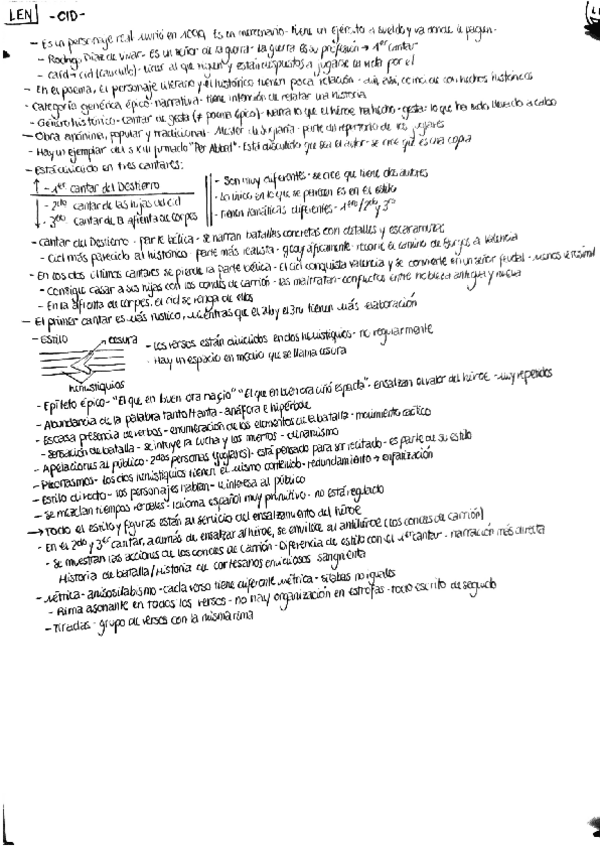 LEN - CID -
- Es un personaje real murió en 1099. Es un mercenario - tiene un ejército a sueldo y va donde le pagan -
- Rodrigo Díaz de Vivar - es un señor de la guerra - la guerra es su profesión → 1er cantar
- Cid (caudillo) - líder al que siguen y están dispuestos a jugarse la vida por él
- En el poema, el personaje literario y el histórico tienen poca relación - aún así, coincide con hechos históricos
- Categoría genérica épico-narrativa - tiene intención de relatar una historia
- Género histórico - cantar de gesta (≠ poema épico) - Narra lo que el héroe ha hecho - gesta: lo que ha sido llevado a cabo
- Obra anónima, popular y tradicional - Mester de Juglaría - parte del repertorio de los juglares
- Hay un ejemplar del s XIII firmado "Per Abbat" - Está discutido que sea el autor - se cree que es una copia
- Está dividido en tres cantares:
- 1er cantar del Destierro
- 2do cantar de las hijas del cid
- 3ero cantar de la afrenta de corpes
- Son muy diferentes - se cree que tiene dos autores
- Lo único en lo que se parecen es en el estilo
- Tienen temáticas diferentes - 1ero/2do y 3ro
- Cantar del Destierro - parte bélica - se narran batallas concretas con detalles y escaramuzas
- Cid más parecido al histórico - parte más realista - geográficamente - recorre el camino de Burgos a Valencia
- En los dos últimos cantares se pierde la parte bélica - El cid conquista Valencia y se convierte en un señor feudal - menos verosímil
- Consigue casar a sus hijas con los condes de carrión - las maltratan - conflictos entre nobleza antigua y nueva
- En la afronta de corpes, el cid se venga de ellos
- El primer cantar es más rústico, mientras que el 2do y el 3ro tienen más elaboración
- Estilo
cesura
hemistiquios
- Los versos están divididos en dos hemistiquios - no regularmente
- Hay un espacio en medio que se llama cesura
- Epíteto épico - "El que en buen ora nació" "El que en buen ora ciñó espada" - ensalzan el valor del héroe - muy repetidos
- Abundancia de la palabra tanto/tanta - anáfora e hipérbole
- Escasa presencia de verbos - enumeración de los elementos de la batalla - movimiento caótico
- Sensación de batalla - se intuye la lucha y los muertos - dinamismo
- Apelaciones al público - 2das personas (juglares) - está pensado para ser recitado - es parte de su estilo
- Pleonasmos - los dos hemistiquios tienen el mismo contenido - redundamiento → enfatización
- Estilo directo - los personajes hablan - le interesa al público
- Se mezclan tiempos verbales - idioma español muy primitivo - no está regulado
→ Todo el estilo y figuras están al servicio del ensalzamiento del héroe
- En el 2do y 3er cantar, además de ensalzar al héroe, se envilece al antihéroe (los condes de carrión)
- Se muestran las acciones de los condes de carrión - Diferencia de estilo con el 1er cantar - narración más directa
Historia de batalla/Historia de cortesanos envidiosos sangrienta
- Métrica - anisosilabismo - cada verso tiene diferente métrica - sílabas no iguales
- Rima asonante en todos los versos - no hay organización en estrofas - todo escrito de seguido
- Tiradas - grupo de versos con la misma rima